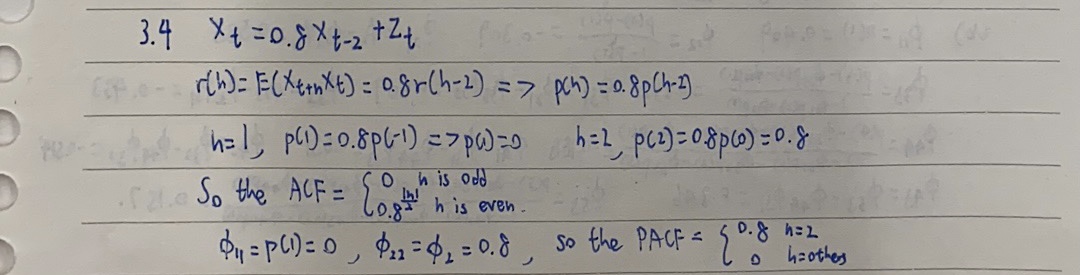 3.4 Xt = 0.8Xt-2 + Zt
r(h) = E(Xt+hXt) = 0.8r(h-2) => p(h) = 0.8p(h-2)
h=1, p(1) = 0.8p(-1) => p(1)=0 h=2, p(2)=0.8p(0)=0.8
So the ACF = { 0 h is odd
0.8^(|h|/2) h is even.
ϕ11 = p(1) = 0, ϕ22 = ϕ2 = 0.8, so the PACF = { 0.8 h=2
0 h=others